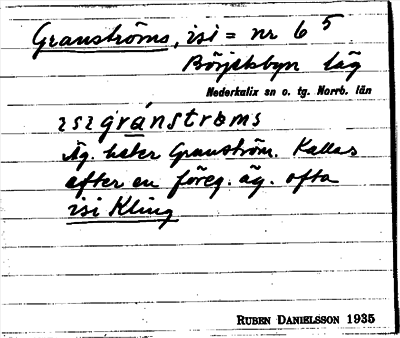 Granströms, isi = nr 6⁵
Börjelsbyn läg
Nederkalix sn o. tg. Norrb. län
ɪsɪ gránstrøms
Äg. heter Granström. Kallas
efter en föreg. äg. ofta
isi Kling
RUBEN DANIELSSON 1935